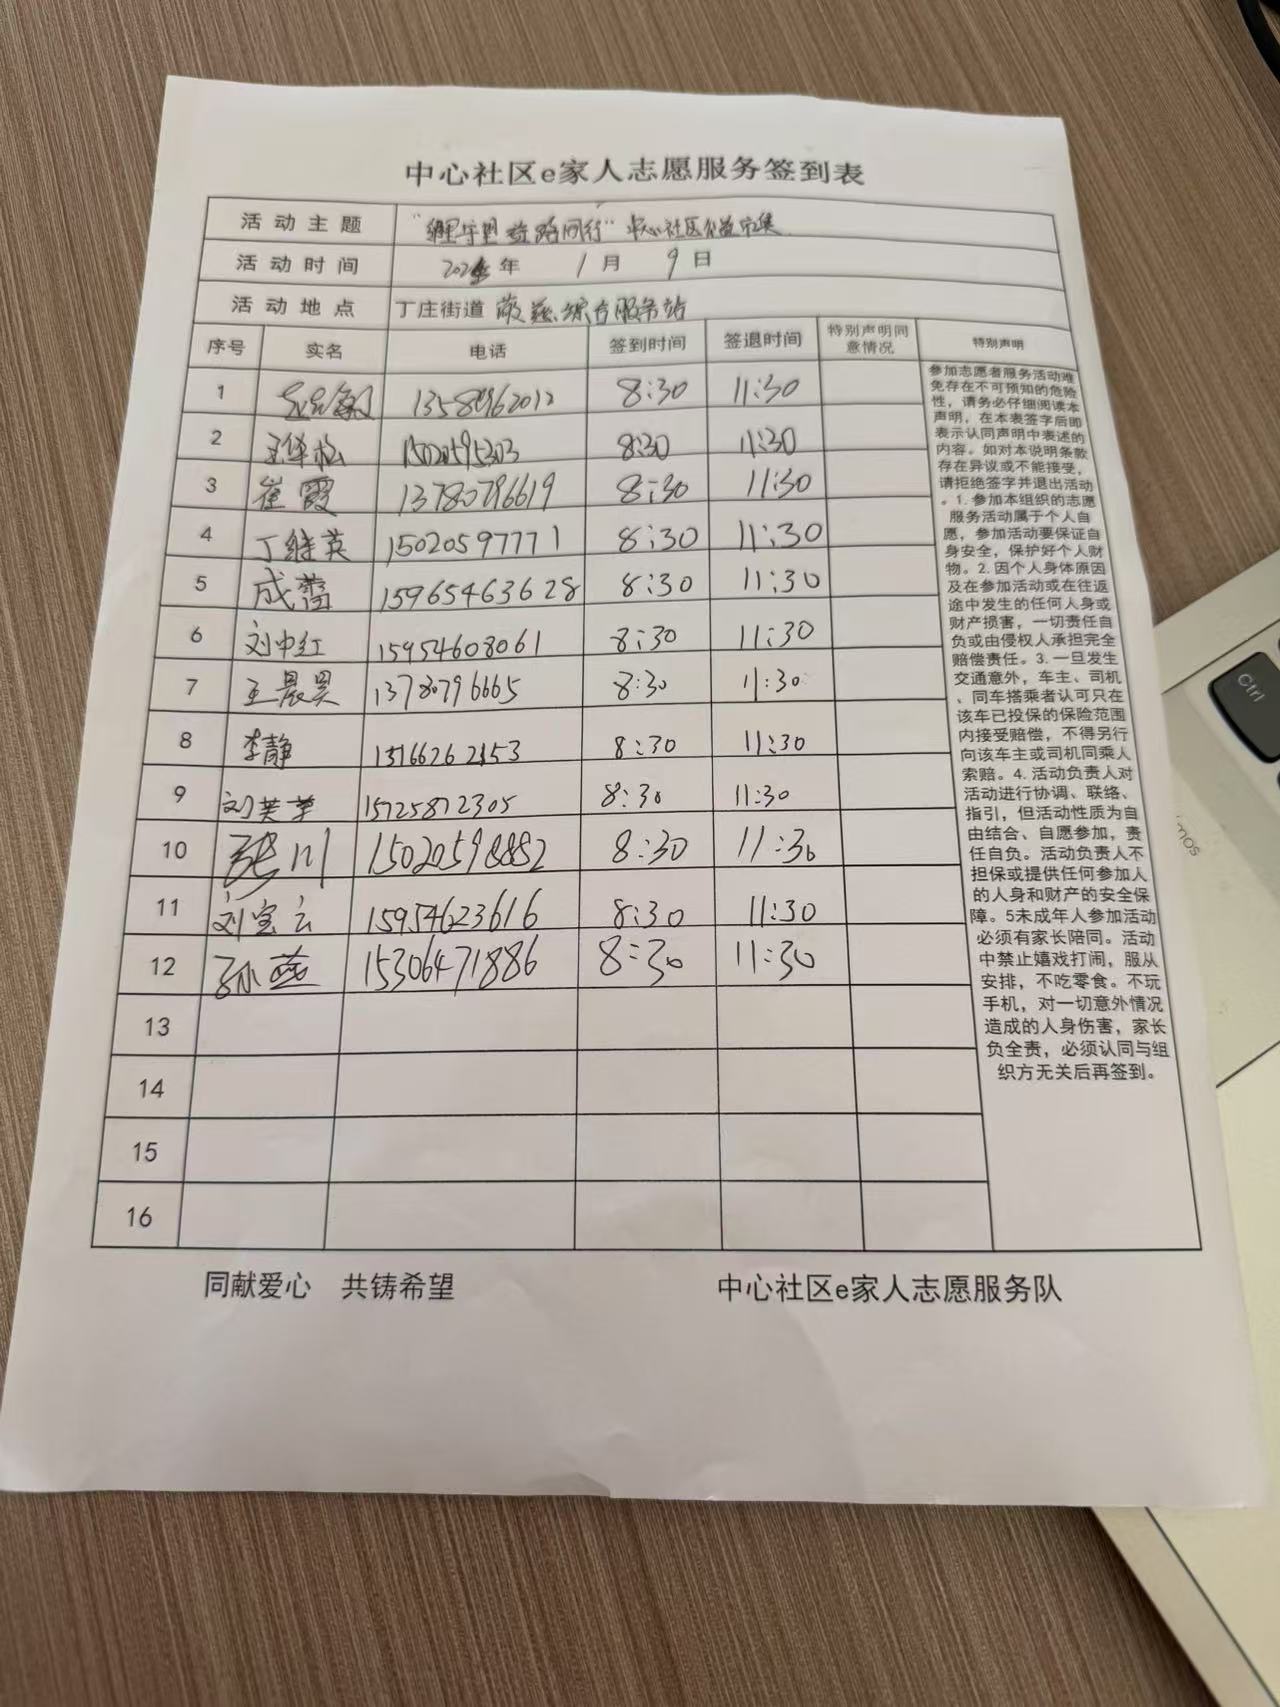 中心社区e家人志愿服务签到表
活动主题 同行" 中心社区公益市集
活动时间 年 1月 9日
活动地点 丁庄街道 综合服务站
序号 实名 电话 签到时间 签退时间 特别声明同意情况 特别声明
1 8:30 11:30
2 15020595303 8:30 11:30
3 崔霞 13780796619 8:30 11:30
4 丁继英 15020597771 8:30 11:30
5 成蕾 15965463628 8:30 11:30
6 刘中红 15954608061 8:30 11:30
7 王晨昊 13780796665 8:30 11:30
8 李静 8:30 11:30
9 刘芙苹 15725872305 8:30 11:30
10 张川 15020598882 8:30 11:30
11 刘宝云 15954623616 8:30 11:30
12 孙燕 15306471886 8:30 11:30
13
14
15
16
参加志愿者服务活动难
免存在不可预知的危险
性，请务必仔细阅读本
声明，在本表签字后即
表示认同声明中表述的
内容。如对本说明条款
存在异议或不能接受，
请拒绝签字并退出活动
。1.参加本组织的志愿
服务活动属于个人自
愿，参加活动要保证自
身安全，保护好个人财
物。2.因个人身体原因
及在参加活动或在往返
途中发生的任何人身或
财产损害，一切责任自
负或由侵权人承担完全
赔偿责任。3.一旦发生
交通意外，车主、司机
、同车搭乘者认可只在
该车已投保的保险范围
内接受赔偿，不得另行
向该车主或司机同乘人
索赔。4.活动负责人对
活动进行协调、联络、
指引，但活动性质为自
由结合、自愿参加，责
任自负。活动负责人不
担保或提供任何参加人
的人身和财产的安全保
障。5未成年人参加活动
必须有家长陪同。活动
中禁止嬉戏打闹，服从
安排，不吃零食。不玩
手机，对一切意外情况
造成的人身伤害，家长
负全责，必须认同与组
织方无关后再签到。
同献爱心 共铸希望 中心社区e家人志愿服务队
Ctrl